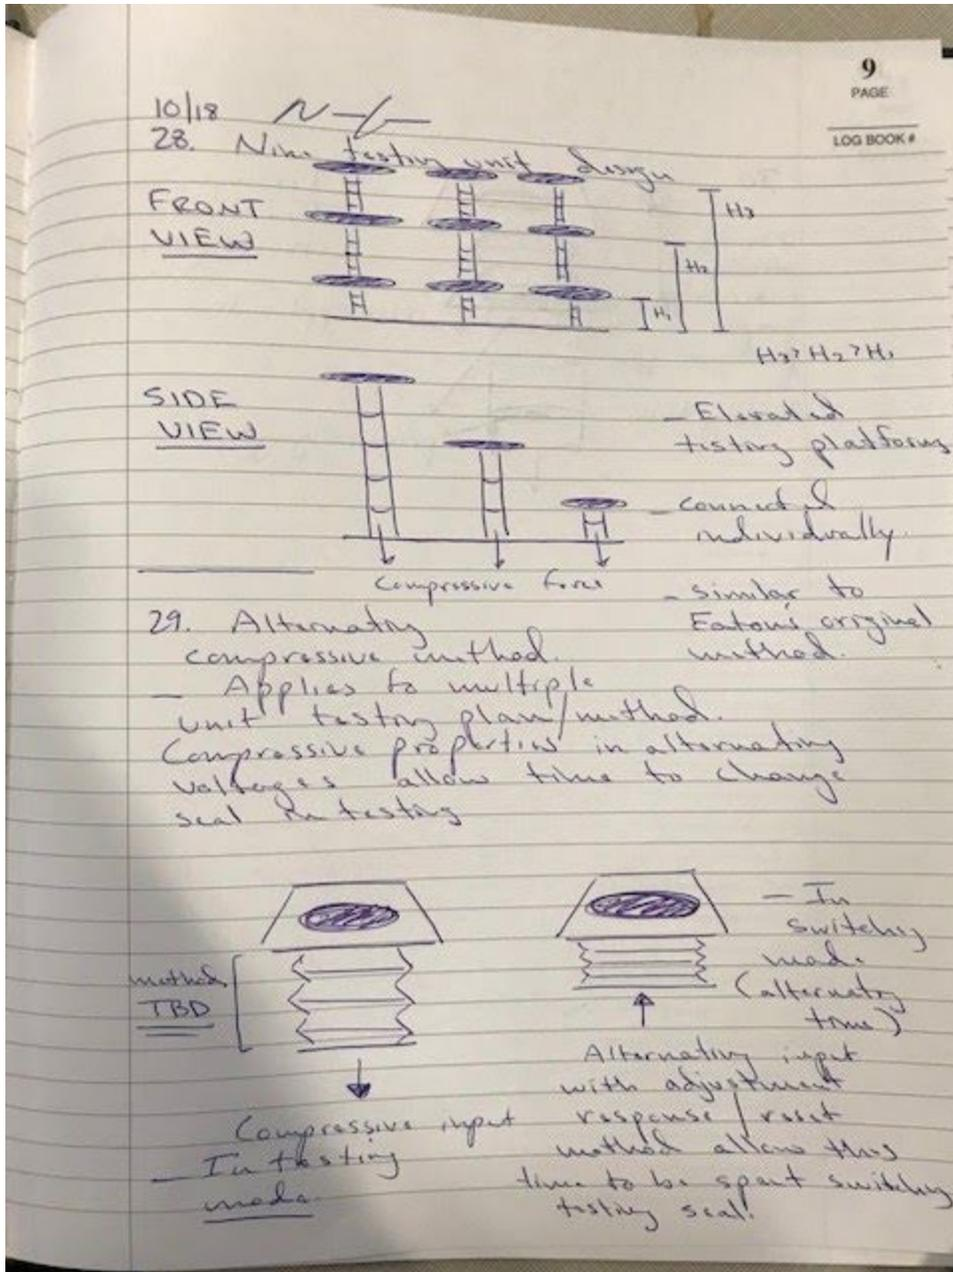 9
PAGE
LOG BOOK #
10/18
28. Nine testing unit design
FRONT
VIEW
H3
H2
H1
H3>H2>H1
SIDE
VIEW
- Elevated
testing platforms
- connected
individually.
- similar to
Eaton's original
method.
Compressive force
29. Alternating
compressive method.
- Applies to multiple
unit testing plan/method.
Compressive properties in alternating
voltages allow time to change
seal in testing
method
TBD
Compressive input
- In testing
mode.
- In
switching
mode
(alternating
time)
Alternating input
with adjustment
response / reset
method allow this
time to be spent switching
testing seal.